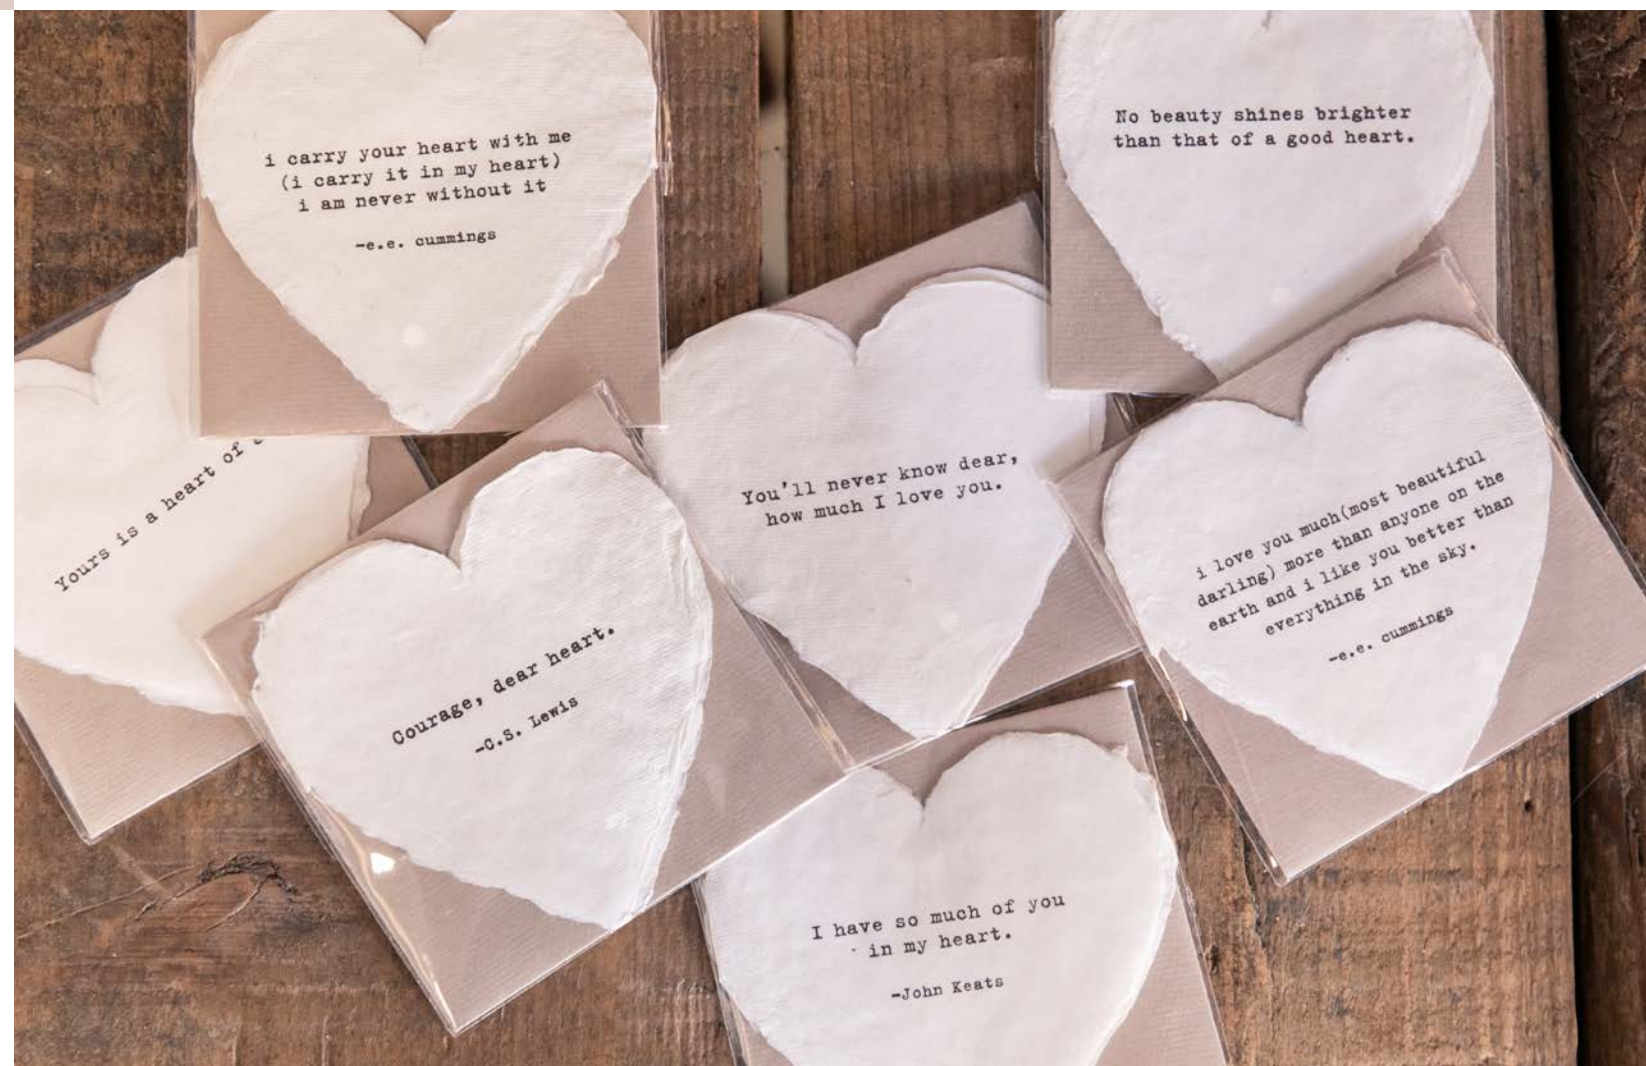 i carry your heart with me
(i carry it in my heart)
i am never without it
-e.e. cummings
No beauty shines brighter
than that of a good heart.
Yours is a heart of
You'll never know dear,
how much I love you.
i love you much(most beautiful
darling) more than anyone on the
earth and i like you better than
everything in the sky.
-e.e. cummings
Courage, dear heart.
-C.S. Lewis
I have so much of you
in my heart.
-John Keats